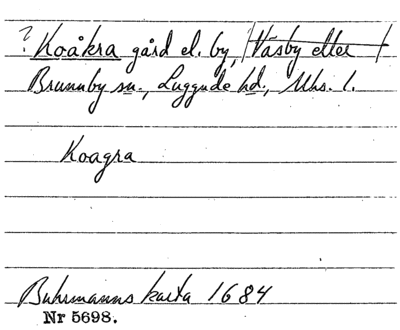 ? Koåkra gård el. by, Väsby eller
Brunnby sn., Luggude hd., Mhs. l.
Koagra
Buhrmanns karta 1684
Nr 5698.